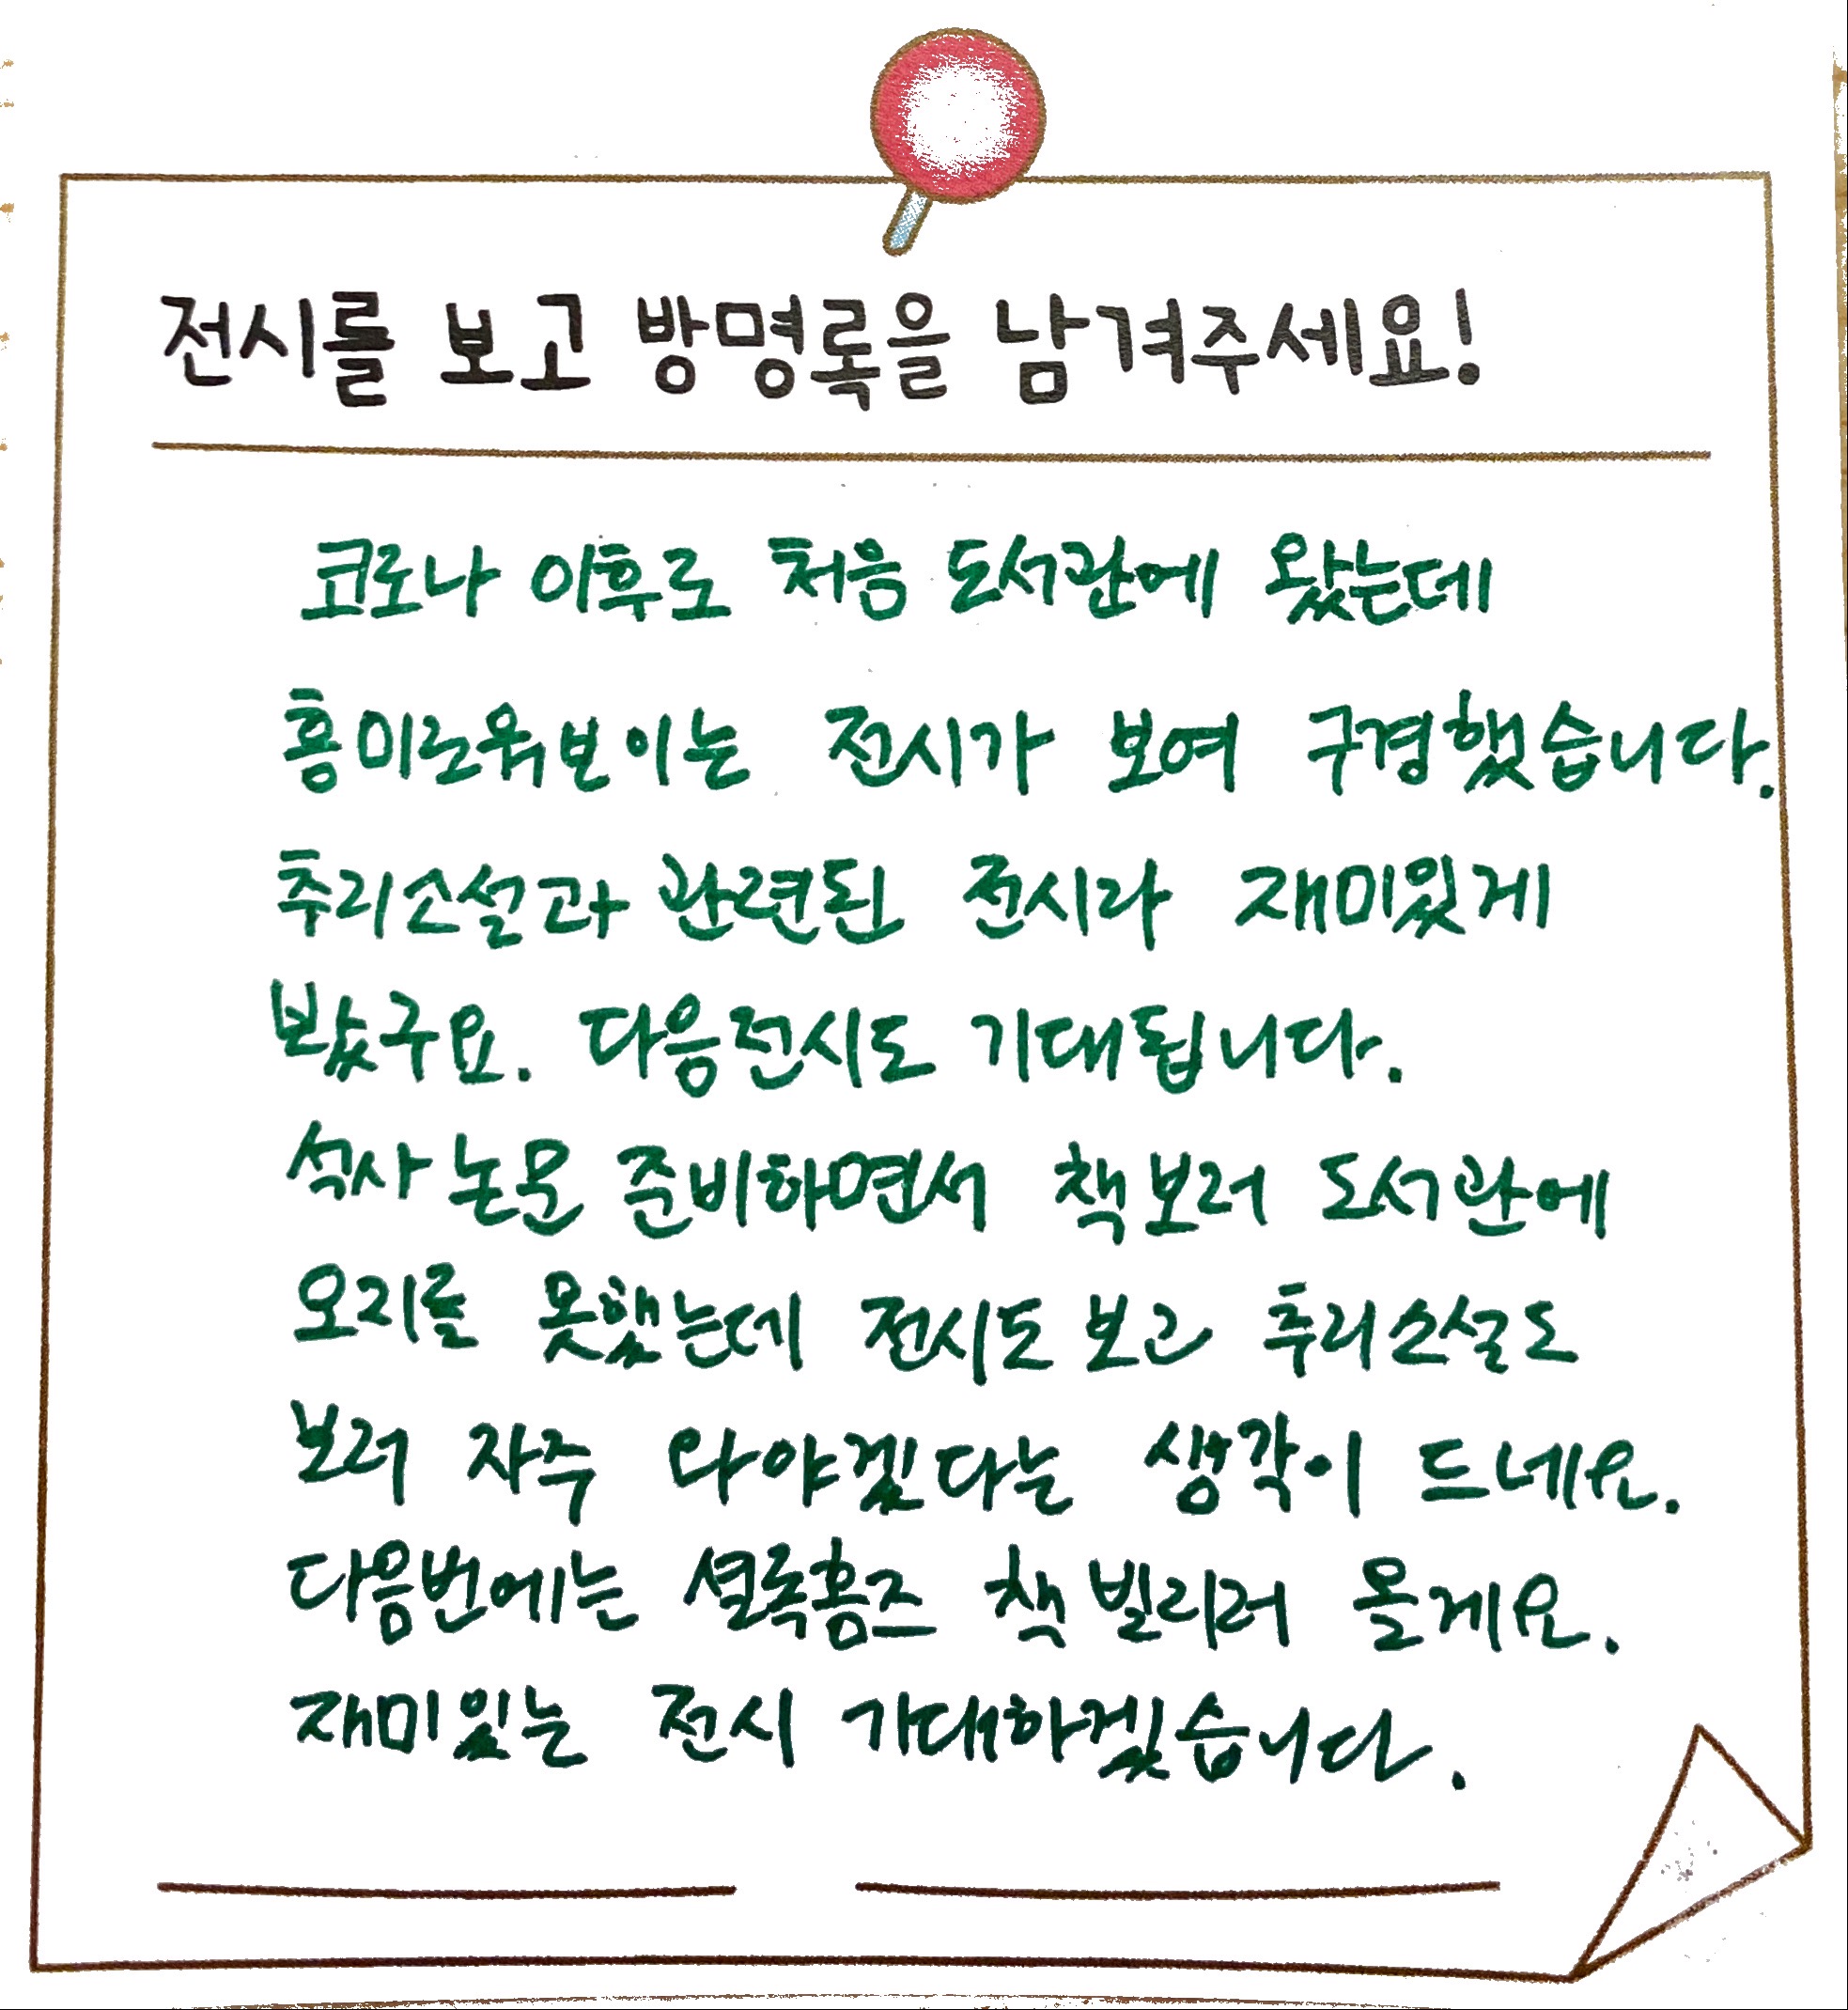 전시를 보고 방명록을 남겨주세요!
코로나 이후로 처음 도서관에 왔는데
흥미로워보이는 전시가 보여 구경했습니다.
추리소설과 관련된 전시라 재미있게
봤구요. 다음전시도 기대됩니다.
석사 논문 준비하면서 책보러 도서관에
오지를 못했는데 전시도 보고 추리소설도
보러 자주 와야겠다는 생각이 드네요.
다음번에는 셜록홈즈 책 빌리러 올게요.
재미있는 전시 기대하겠습니다.